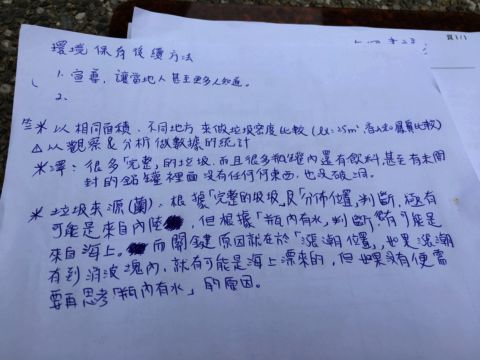 環境保存後續方法
1. 宣導，讓當地人甚至更多人知道。
2.
※以相同面積，不同地方來做垃圾密度比較
△以觀察&分析做數據的統計
※澤：很多「完整」的垃圾，而且很多瓶罐內還有飲料，甚至有未開
封的鋁罐裡面沒有任何東西，也沒破洞。
※垃圾來源(蘭)，根據「完整的垃圾」及「分佈位置」判斷，極有
可能是來自內陸，但根據「瓶內有水」判斷有可能是
來自海上。而關鍵原因就在於「漲潮位置」，如果漲潮
有到消波塊內，就有可能是海上漂來的，但如果沒有便需
要再思考「瓶內有水」的原因。